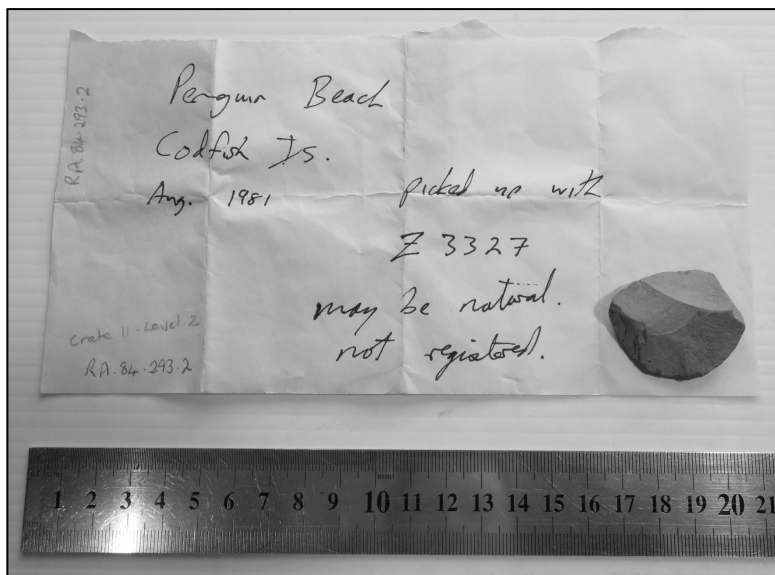 RA.84.293.2
Penguin Beach
Codfish Is.
Aug. 1981
picked up with
Z 3327
may be natural.
not registered.
Crate 11 - Level 2
RA.84.293.2
1 2 3 4 5 6 7 8 9 10 11 12 13 14 15 16 17 18 19 20 21